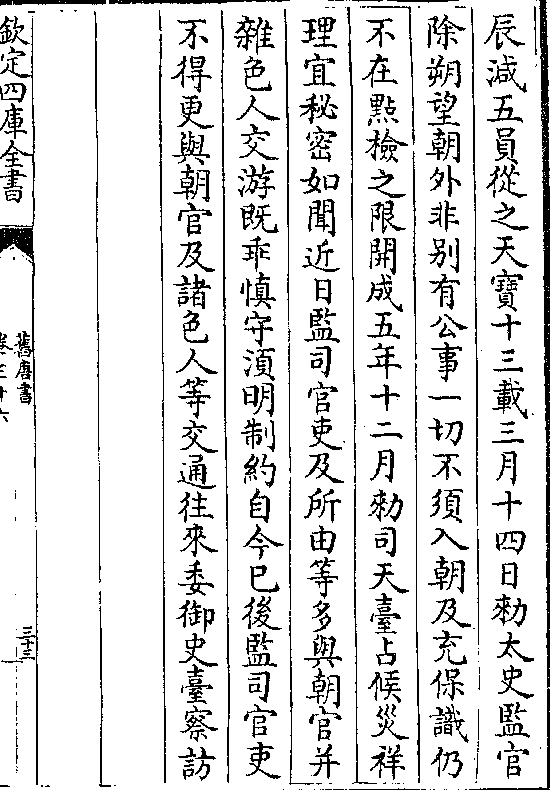 辰減五員從之天寶十三載三月十四日勑太史監官
除朔望朝外非别有公事一切不須入朝及充保識仍
不在點檢之限開成五年十二月勑司天臺占候災祥
理宜秘密如聞近日監司官吏及所由等多與朝官并
雜色人交游既乖慎守須明制約自今已後監司官吏
不得更與朝官及諸色人等交通往來委御史臺察訪
欽定四庫全書
舊唐書
卷三十六
三十三